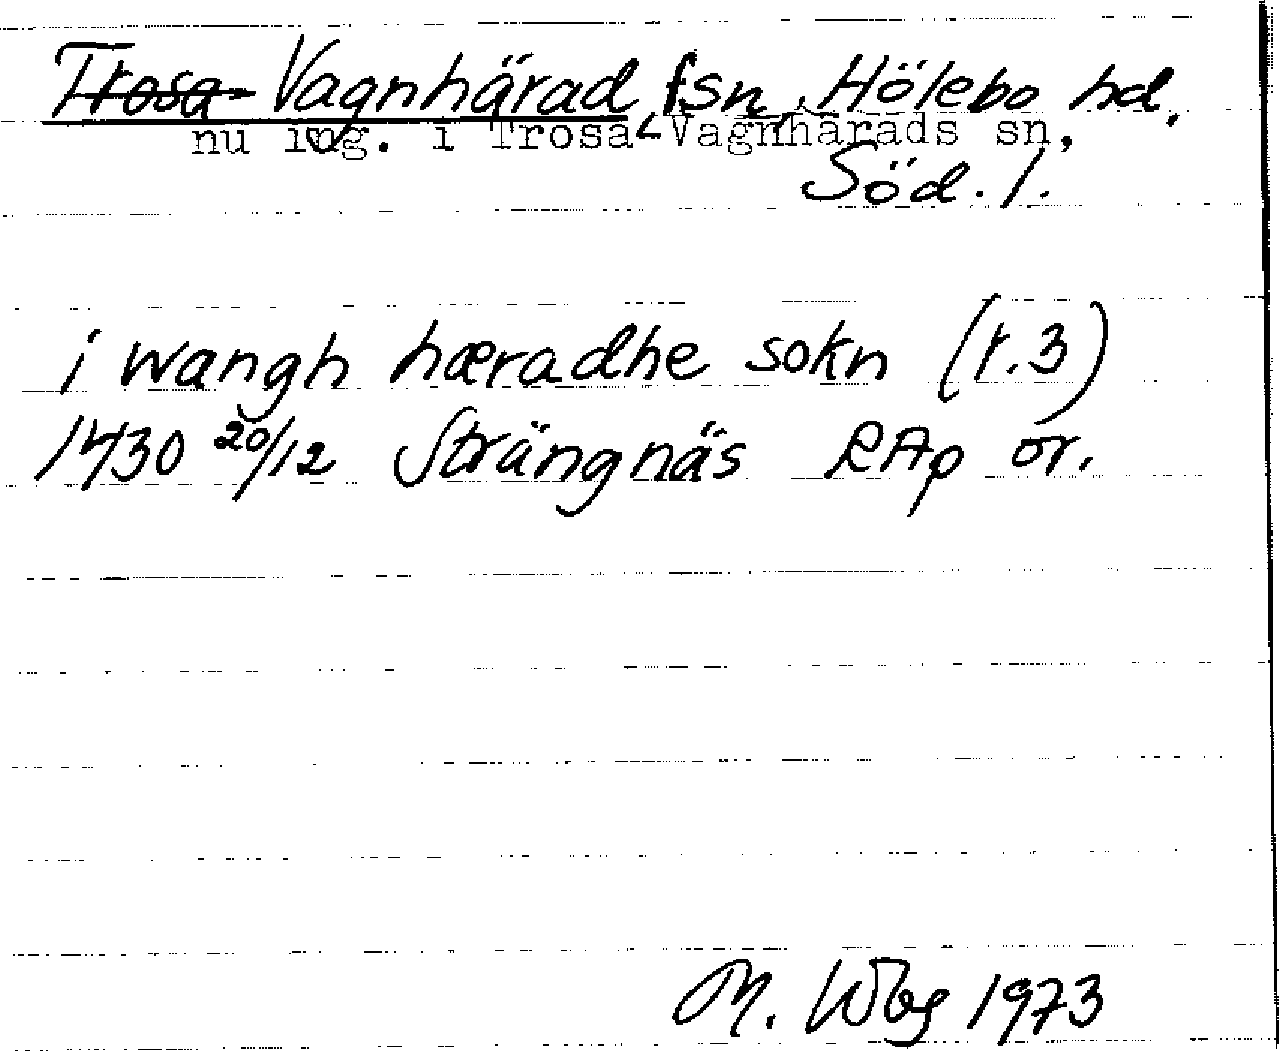 Trosa- Vagnhärad, fsn, Hölebo hd,
nu ing. i Trosa-Vagnhärads sn,
Söd. l.
i wangh hæradhe sokn (r.3)
1430 20/12 Strängnäs RAp or.
M. Wbg 1973